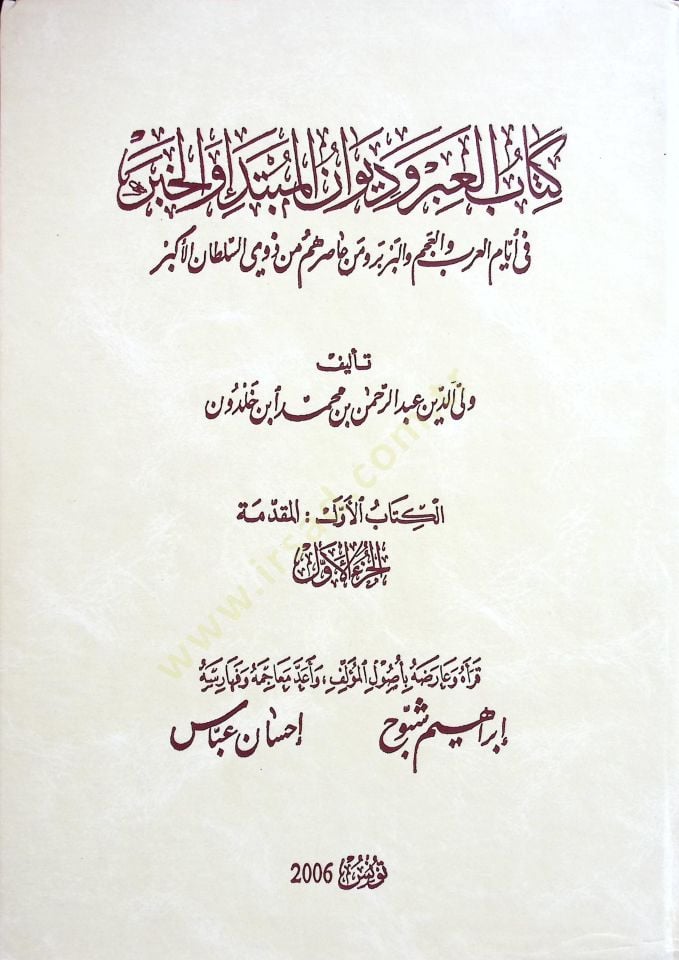 كِتَابُ العِبَر وَدِيوَانُ المُبْتَدَإِ وَالخَبَرْ
في أيّام العرب والعجم والبَربَر ومَن عاصرهمُ من ذوي السّلطان الأكبرْ
تأليفْ
وليّ الدّين عبد الرّحمٰن بن محمّد ابن خَلدُون
الكِتَابُ الأوّلْ: المقدّمة
الجُزءُ الأوَّلْ
قرَأهُ وعَارَضهُ بِأصُولِ المُؤلِّفِ، وأعَدَّ مَعَاجِمَهُ وَفَهَارِسَهُ
إبراهيم شبّوح إحسَان عبّاس
تُونسْ 2006
www.irsad.com.tr